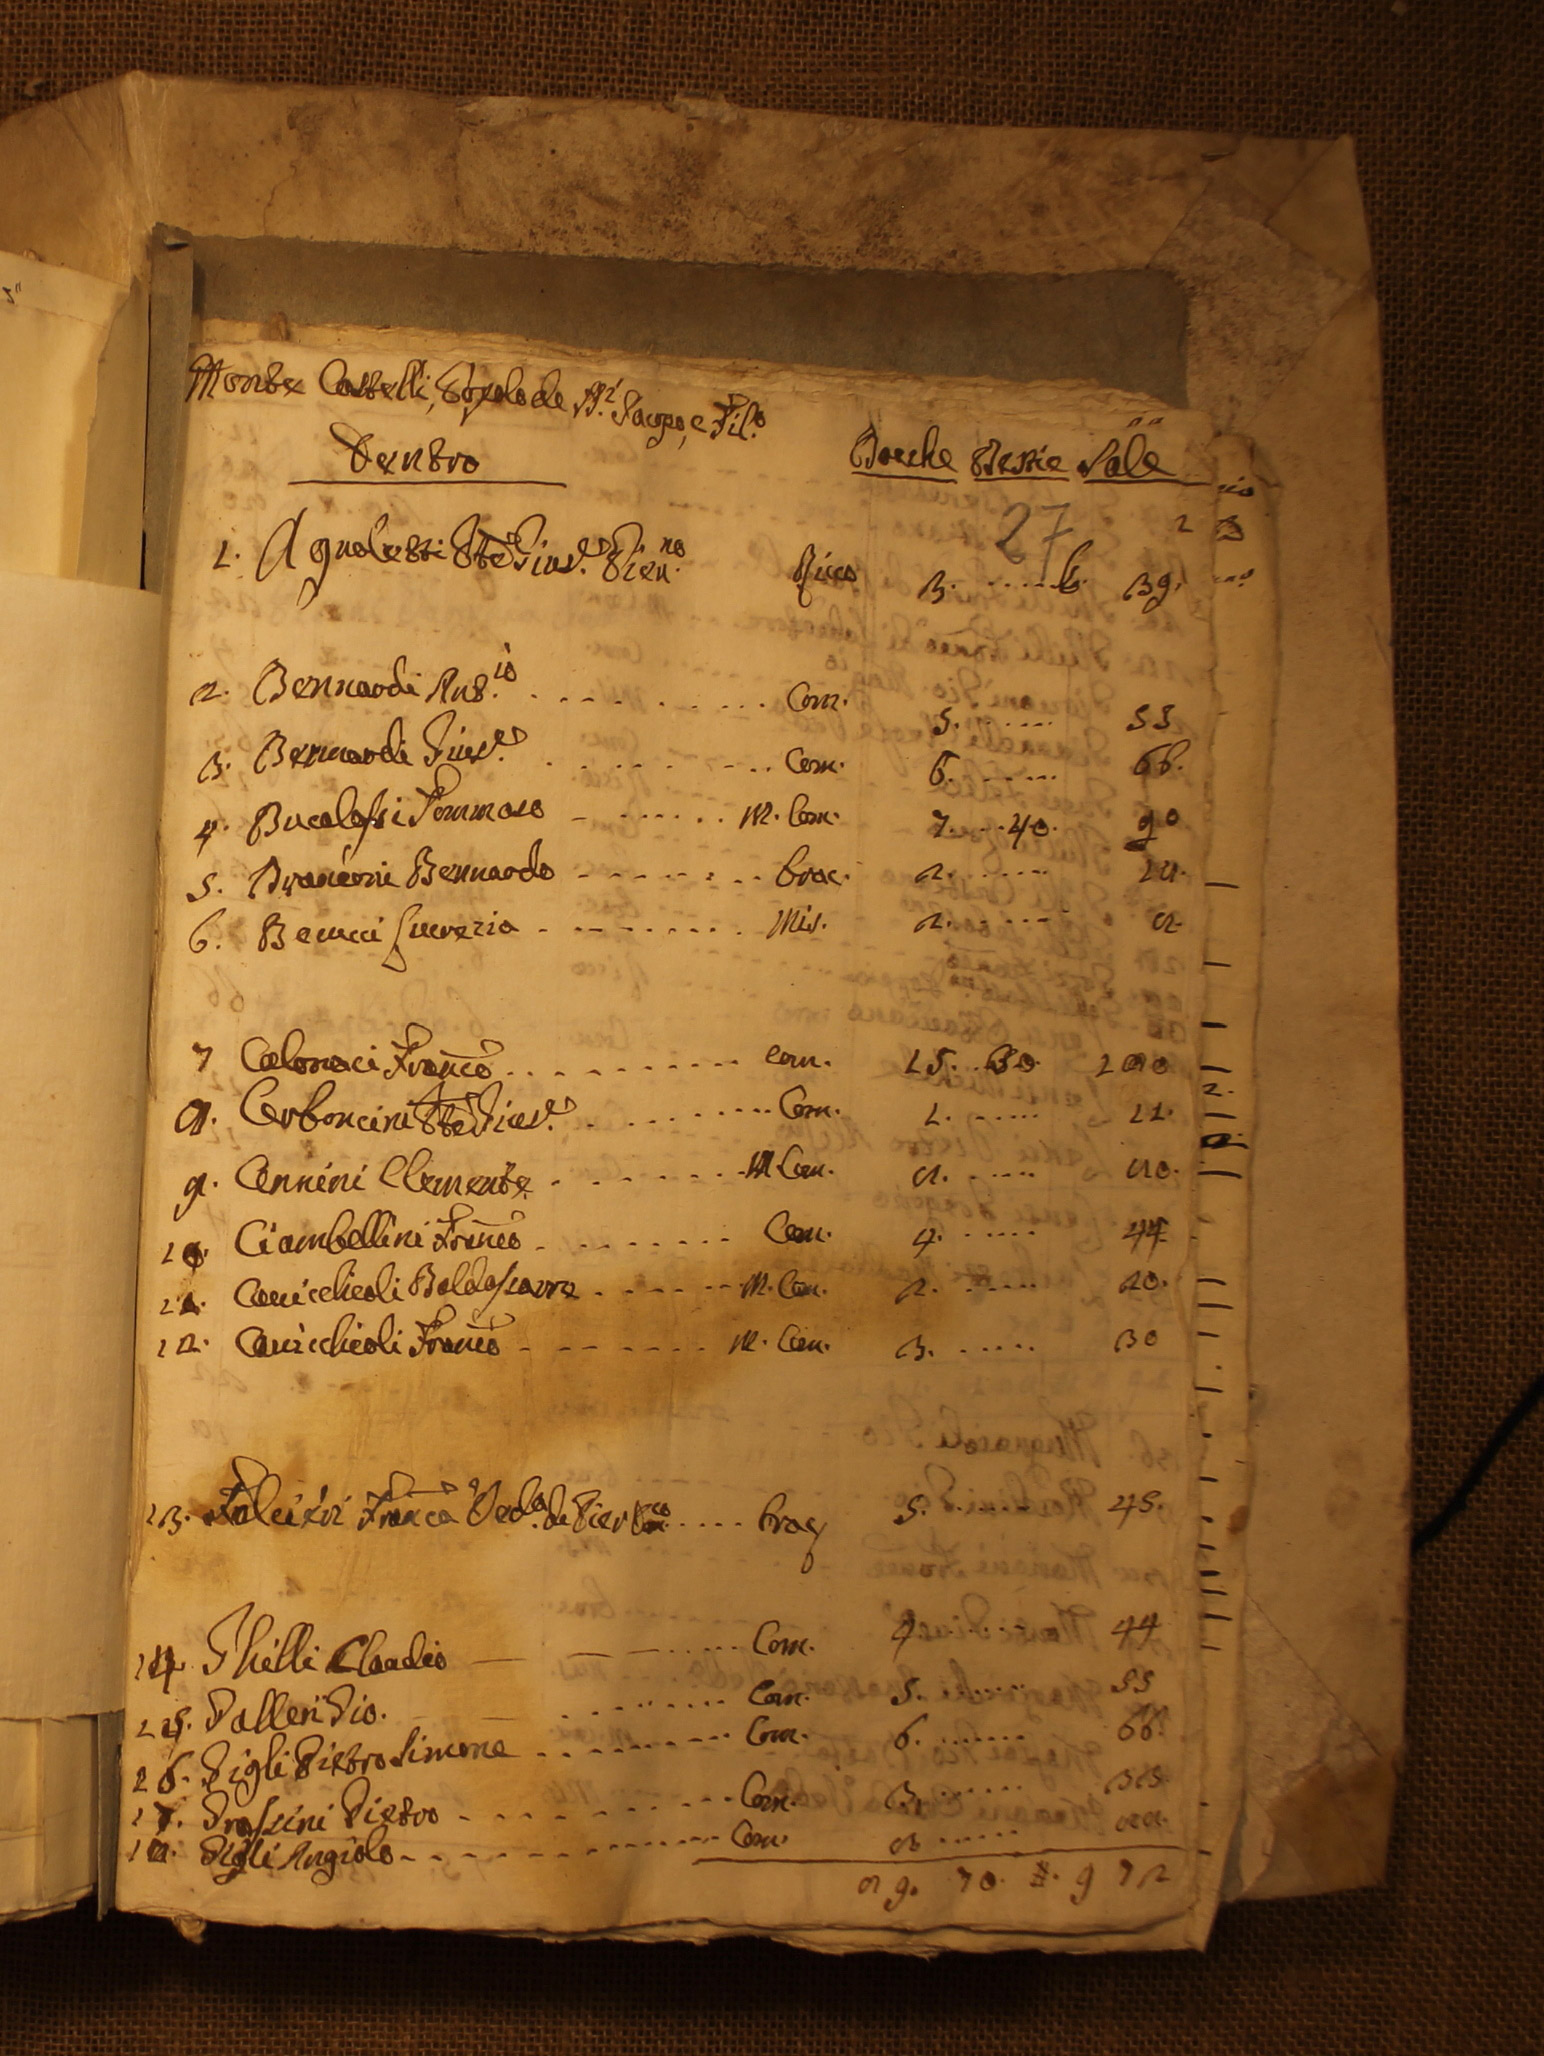 Monte Castelli, Popolo de SS.i Jacopo, e Fil.o
Dentro
Bocche Bestie Sale
27
1. Agnoletti Gius.e Ricco 3. 39.
2. Bernardi Ant.io Com. 5. 55
3. Bernardi Gius.e Com. 6. 66.
4. Bucalossi Tommaso M. Com. 7. 40. 90
5. Branconi Bernardo brac. 2.
6. Benucci Lucrezia Mis. 2.
7 Calonaci Franco Com. 15. 80. 200
8. Carboncini Gius.e Com. 1. 11.
9. Cennini Clemente M. Com. 2. 20.
10. Ciambellini Franco Com. 4. 44
11. Conicchioli Baldassarre M. Com. 2. 20.
12. Conicchioli Franco M. Com. 3. 30
13. Falcini Franca Ved.a di Pier brac 5. 45.
14. Ghelli Claudio Com. 4 44
15. Galleri Gio. Com. 5. 55
16. Gigli Pietro Simone Com. 6. 66.
17. Grassini Pietro Com. 3. 33.
18. Gigli Angiolo Com. 2 22.
70. 972